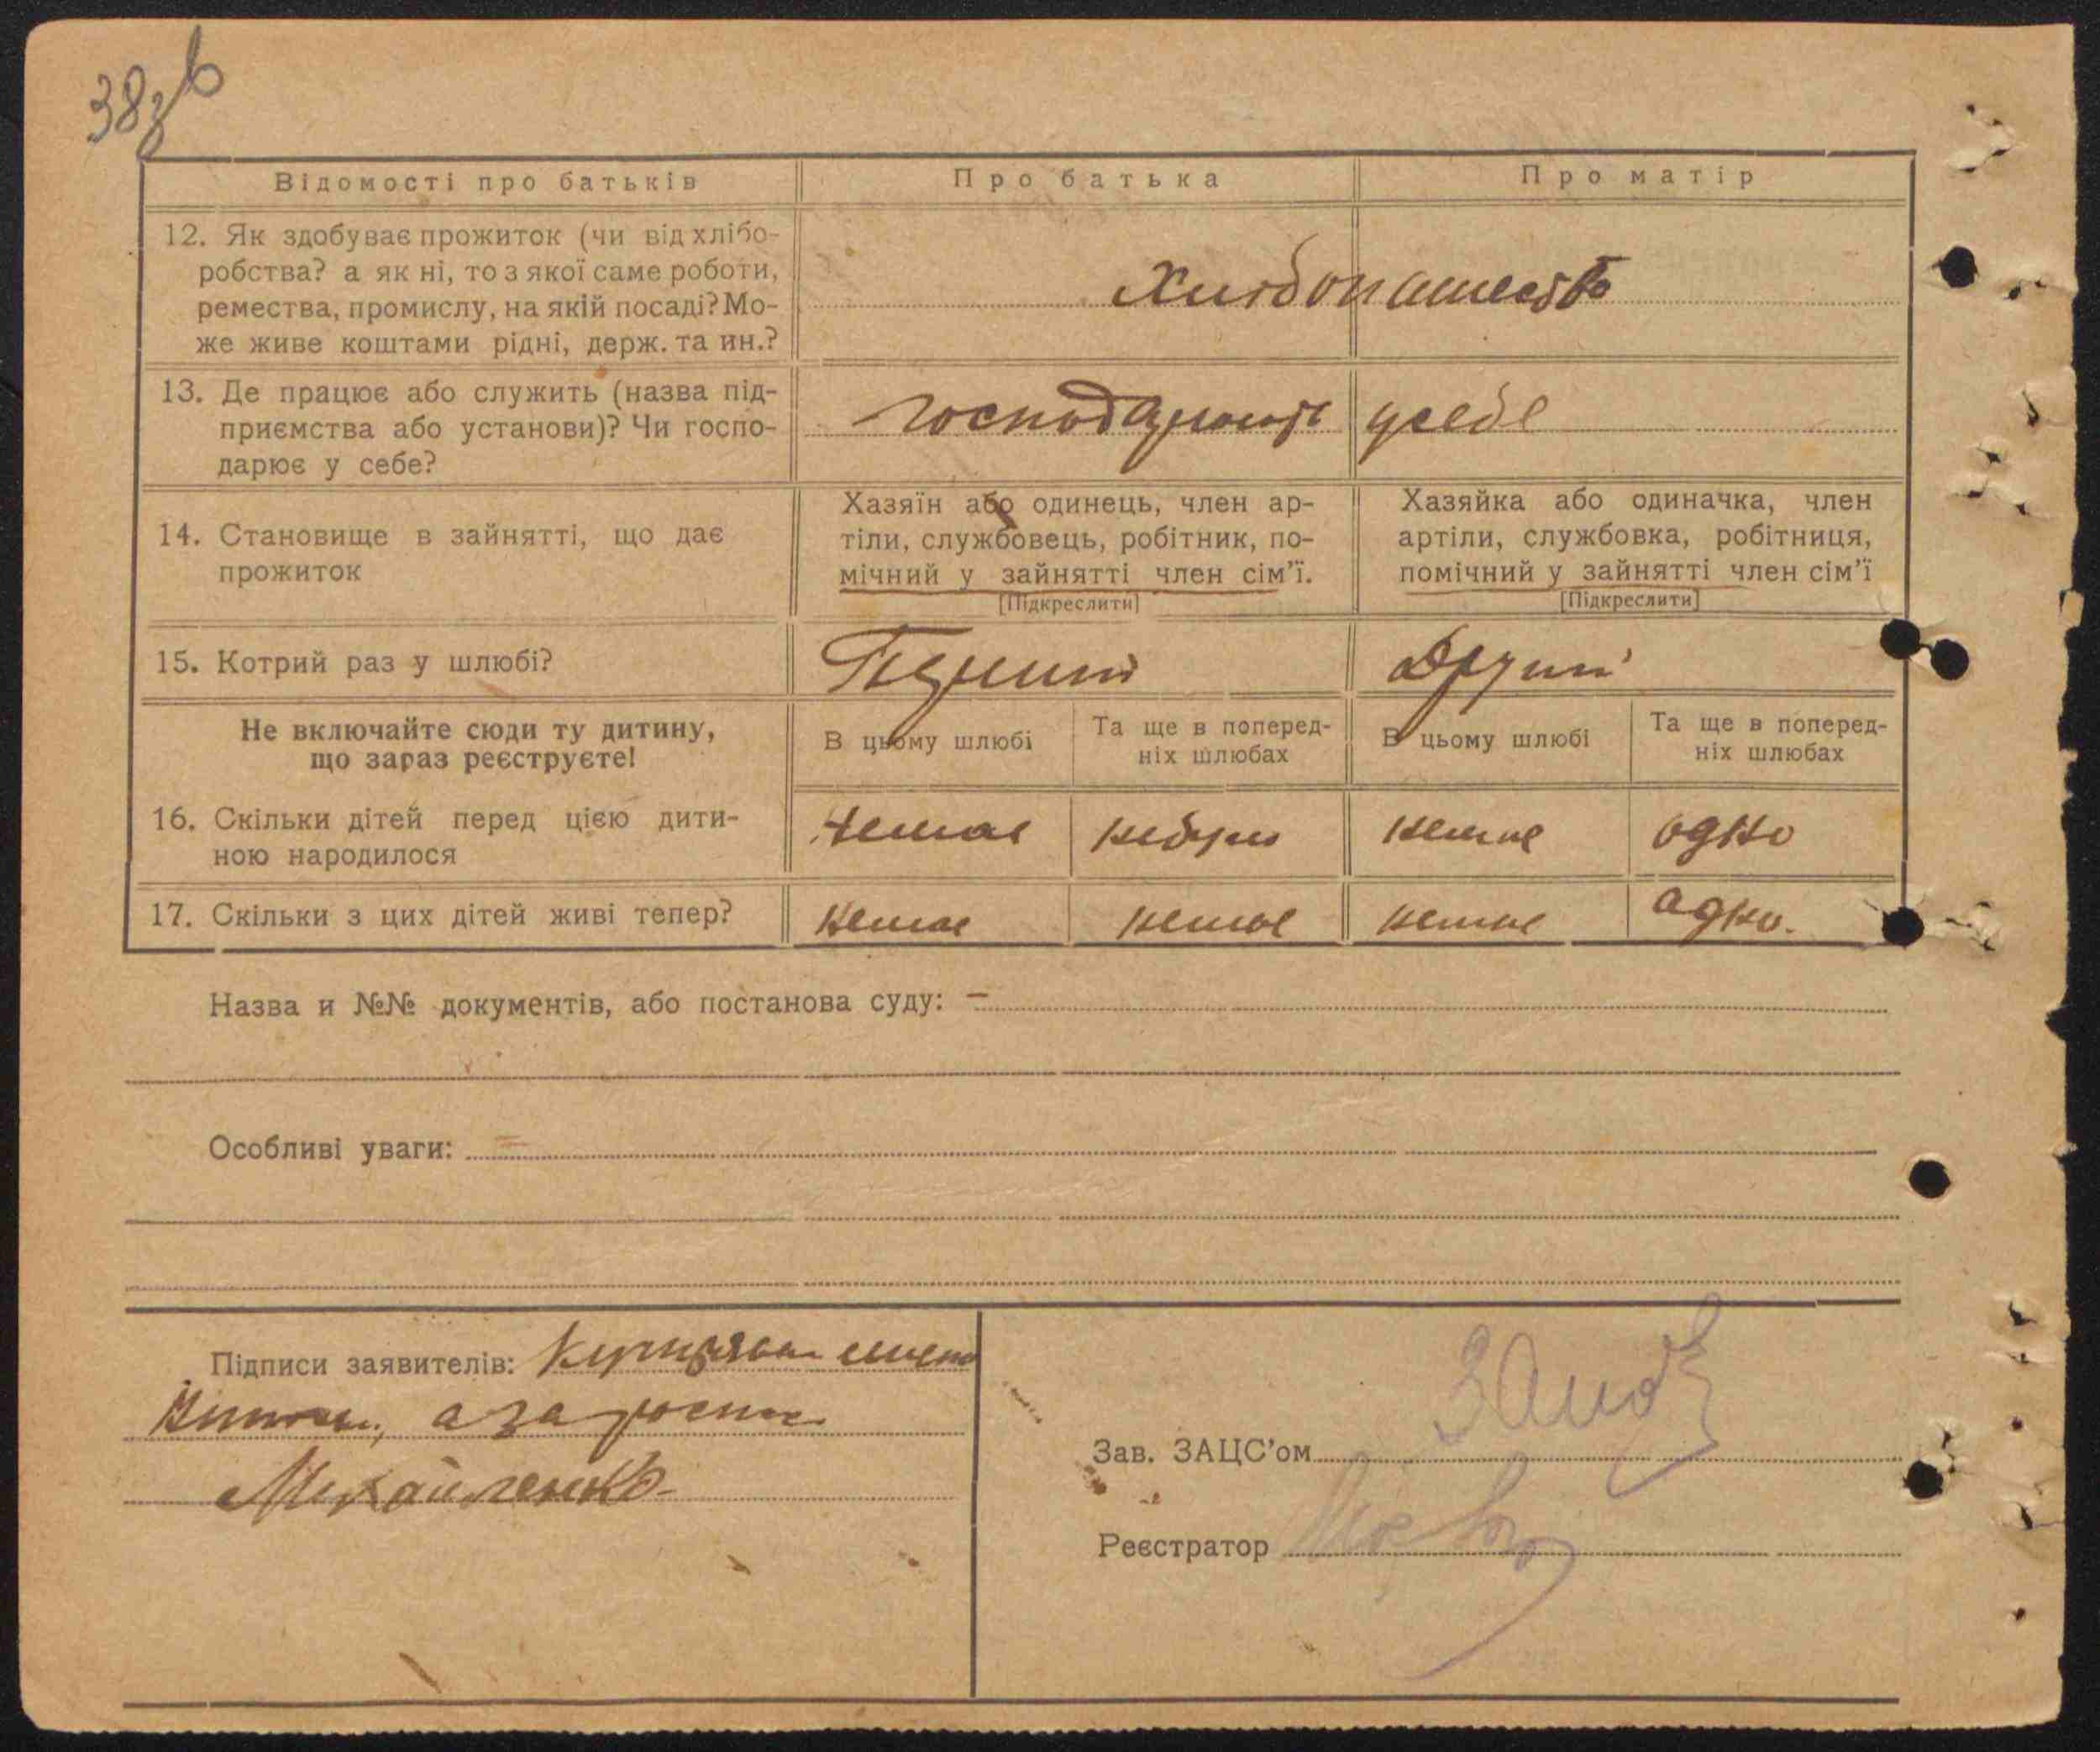 38зв
Відомості про батьків
Про батька
Про матір
12. Як здобуває прожиток (чи від хлібо-
робства? а як ні, то з якої саме роботи,
ремества, промислу, на якій посаді? Мо-
же живе коштами рідні, держ. та ин.?
Хлібопашество
13. Де працює або служить (назва під-
приємства або установи)? Чи госпо-
дарює у себе?
господарюють усебе
14. Становище в зайнятті, що дає
прожиток
Хазяїн або одинець, член ар-
тіли, службовець, робітник, по-
мічний у зайнятті член сім’ї.
[Підкреслити]
Хазяйка або одиначка, член
артіли, службовка, робітниця,
помічний у зайнятті член сім’ї
[Підкреслити]
15. Котрий раз у шлюбі?
Другий
Не включайте сюди ту дитину,
що зараз реєструєте!
В цьому шлюбі
Та ще в поперед-
ніх шлюбах
В цьому шлюбі
Та ще в поперед-
ніх шлюбах
16. Скільки дітей перед цією дити-
ною народилося
немає
небуло
немає
одно
17. Скільки з цих дітей живі тепер?
немає
немає
немає
одно.
Назва и №№ документів, або постанова суду: —
Особливі уваги:
Підписи заявителів:
Михайленко
Зав. ЗАЦС’ом
Реєстратор